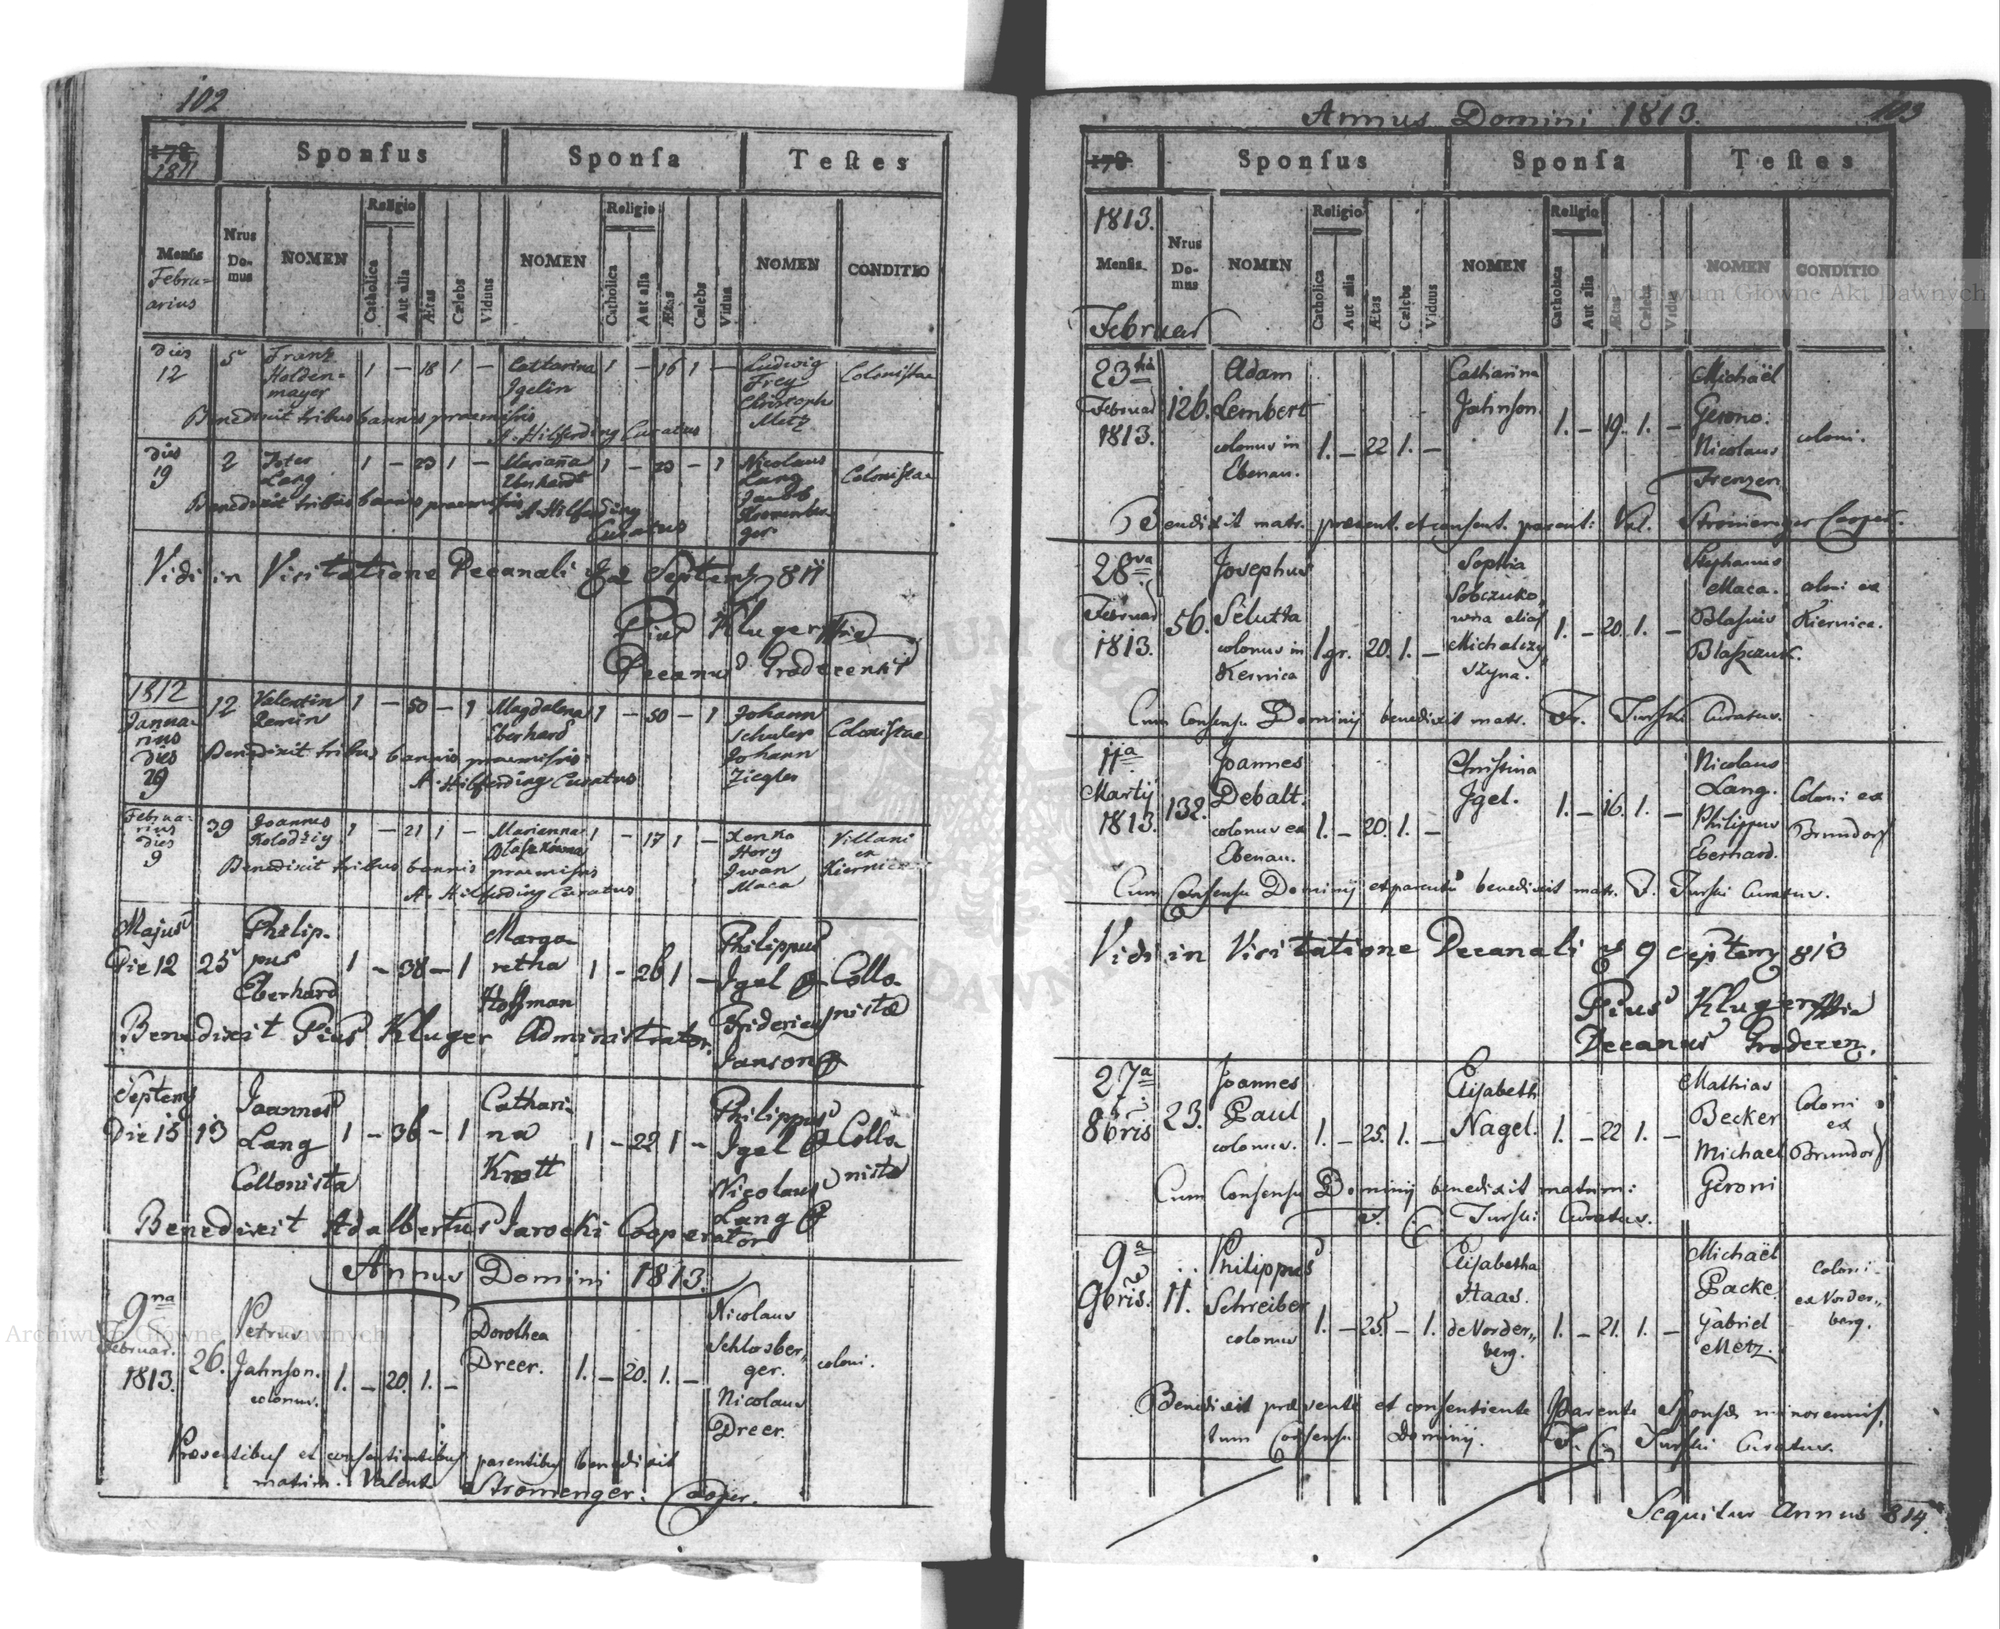 102
178
1811
Sponsus
Sponsa
Testes
Mensis
Febru=
arius
Nrus
Do-
mus
NOMEN
Religio
Catholica
Aut alia
Ætas
Cælebs
Viduus
NOMEN
Religio
Catholica
Aut alia
Ætas
Cælebs
Vidua
NOMEN
CONDITIO
dies
12
5
Franz
Holden=
mayer
1 – 18 1 –
Cattarina
Igelin
1 – 16 1 –
Ludwig
Frey
Christoph
Metz
Colonistae
Benedixit tribus bannis praemissis
A. Hilferding Curatus
dies
19
2
Peter
Lang
1 – 23 1 –
Marianna
Eberhardt
1 – 23 – 1
Nicolaus
Lang
Jacob
Colonistae
Benedixit tribus bannis praemissis
A. Hilferding
Curatus
Vidi in Visitatione Decanali Septemb 811
Pius Kluger
Decanus Grodecensis
1812
Janua-
rius
Dies
29
12
Valentin
1 – 50 – 1
Magdalena
Eberhard
1 – 50 – 1
Johann
Schuler
Johann
Ziegler
Colonistae
Benedixit tribus bannis praemissis
A. Hilferding Curatus
Februa-
rius
Dies
9
39
Joannes
Kolodziy
1 – 21 1 –
Marianna
1 – 17 1 –
Hory
Iwan
Maca
Villani
ex
Kiernice
Benedixit tribus bannis praemissis
A. Hilferding Curatus
Majus
Die 12
25
Philip-
pus
Eberhard
1 – 38 – 1
Marga-
retha
Hoffman
1 – 26 1 –
Philippus
Igel
Fridericus
Janson
Collo-
nistæ
Benedixit Pius Kluger Administrator.
Septemb
Die 15
13
Joannes
Lang
Collonista
1 – 36 – 1
Cathari-
na
Krott
1 – 22 1 –
Philippus
Igel
Nicolaus
Lang
Collo-
nistæ
Benedixit Adalbertus Jarocki Cooperator
Annus Domini 1813.
9na
Februar.
1813.
26.
Petrus
Jahnson.
colonus.
1. – 20. 1. –
Dorothea
Dreer.
1. – 20. 1. –
Nicolaus
Schlosber„
ger.
Nicolaus
Dreer.
coloni.
Præsentibus et consentientibus parentibus benedixit
matrim. Valent Stromenger. Cooper.
Annus Domini 1813.
103
178
Sponsus
Sponsa
Testes
1813.
Mensis.
Februar
Nrus
Do-
mus
NOMEN
Religio
Catholica
Aut alia
Ætas
Cælebs
Viduus
NOMEN
Religio
Catholica
Aut alia
Ætas
Cælebs
Vidua
NOMEN
CONDITIO
23tia
Februar
1813.
126.
Adam
Lembert
colonus in
Ebenau.
1. – 22 1. –
Catharina
Jahnson.
1. – 19. 1. –
Michaël
Gerono.
Nicolaus
Frenzen
coloni.
Bendixit matr. præsent. et consent. parent: Val. Stromenger Cooper.
28va
Februar
1813.
56.
Josephus
Selutka
colonus in
Kernica
1 gr. 20. 1. –
Sophia
Sobczuko„
wna alias
Michalczy„
szyna.
1. – 20. 1. –
Stephanus
Maca.
Blasius
Blaszczuk.
coloni ex
Kiernica.
Cum Consensu Dominij benedixit matr. Fr. Turski Curatus.
11a
Martij
1813.
132.
Joannes
Debalt.
colonus ex
Ebenau.
1. – 20. 1. –
Christina
Igel.
1. – 16. 1. –
Nicolaus
Lang.
Philippus
Eberhard.
Coloni ex
Brundorf
Cum Consensu Dominij et parentū benedixit matr. F. Turski Curatus.
Vidi in Visitatione Decanali 9 Septemb 813
Pius Kluger
Decanus Grodecen.
27a
8bris
23.
Joannes
Paul
colonus.
1. – 25. 1. –
Elisabeth
Nagel.
1. – 22 1. –
Mathias
Becker
Michael
Geroni
Coloni
ex
Brundorf
Cum Consensu Dominij benedixit matrim:
F. Turski Curatus.
9a
9bris.
11.
Philippus
Schreiber
colonus
1. – 25. – 1.
Elisabetha
Haas.
de Vorder„
berg.
1. – 21. 1. –
Michaël
Packe.
Gabriel
Metz.
coloni
ex Vorder„
berg.
Benedixit prævente et consentiente Parente Sponsæ minorennis,
tum Consensu Dominij. F. Turski Curatus.
Sequitur Annus 814.
Archiwum Główne Akt Dawnych
Archiwum Główne Akt Dawnych